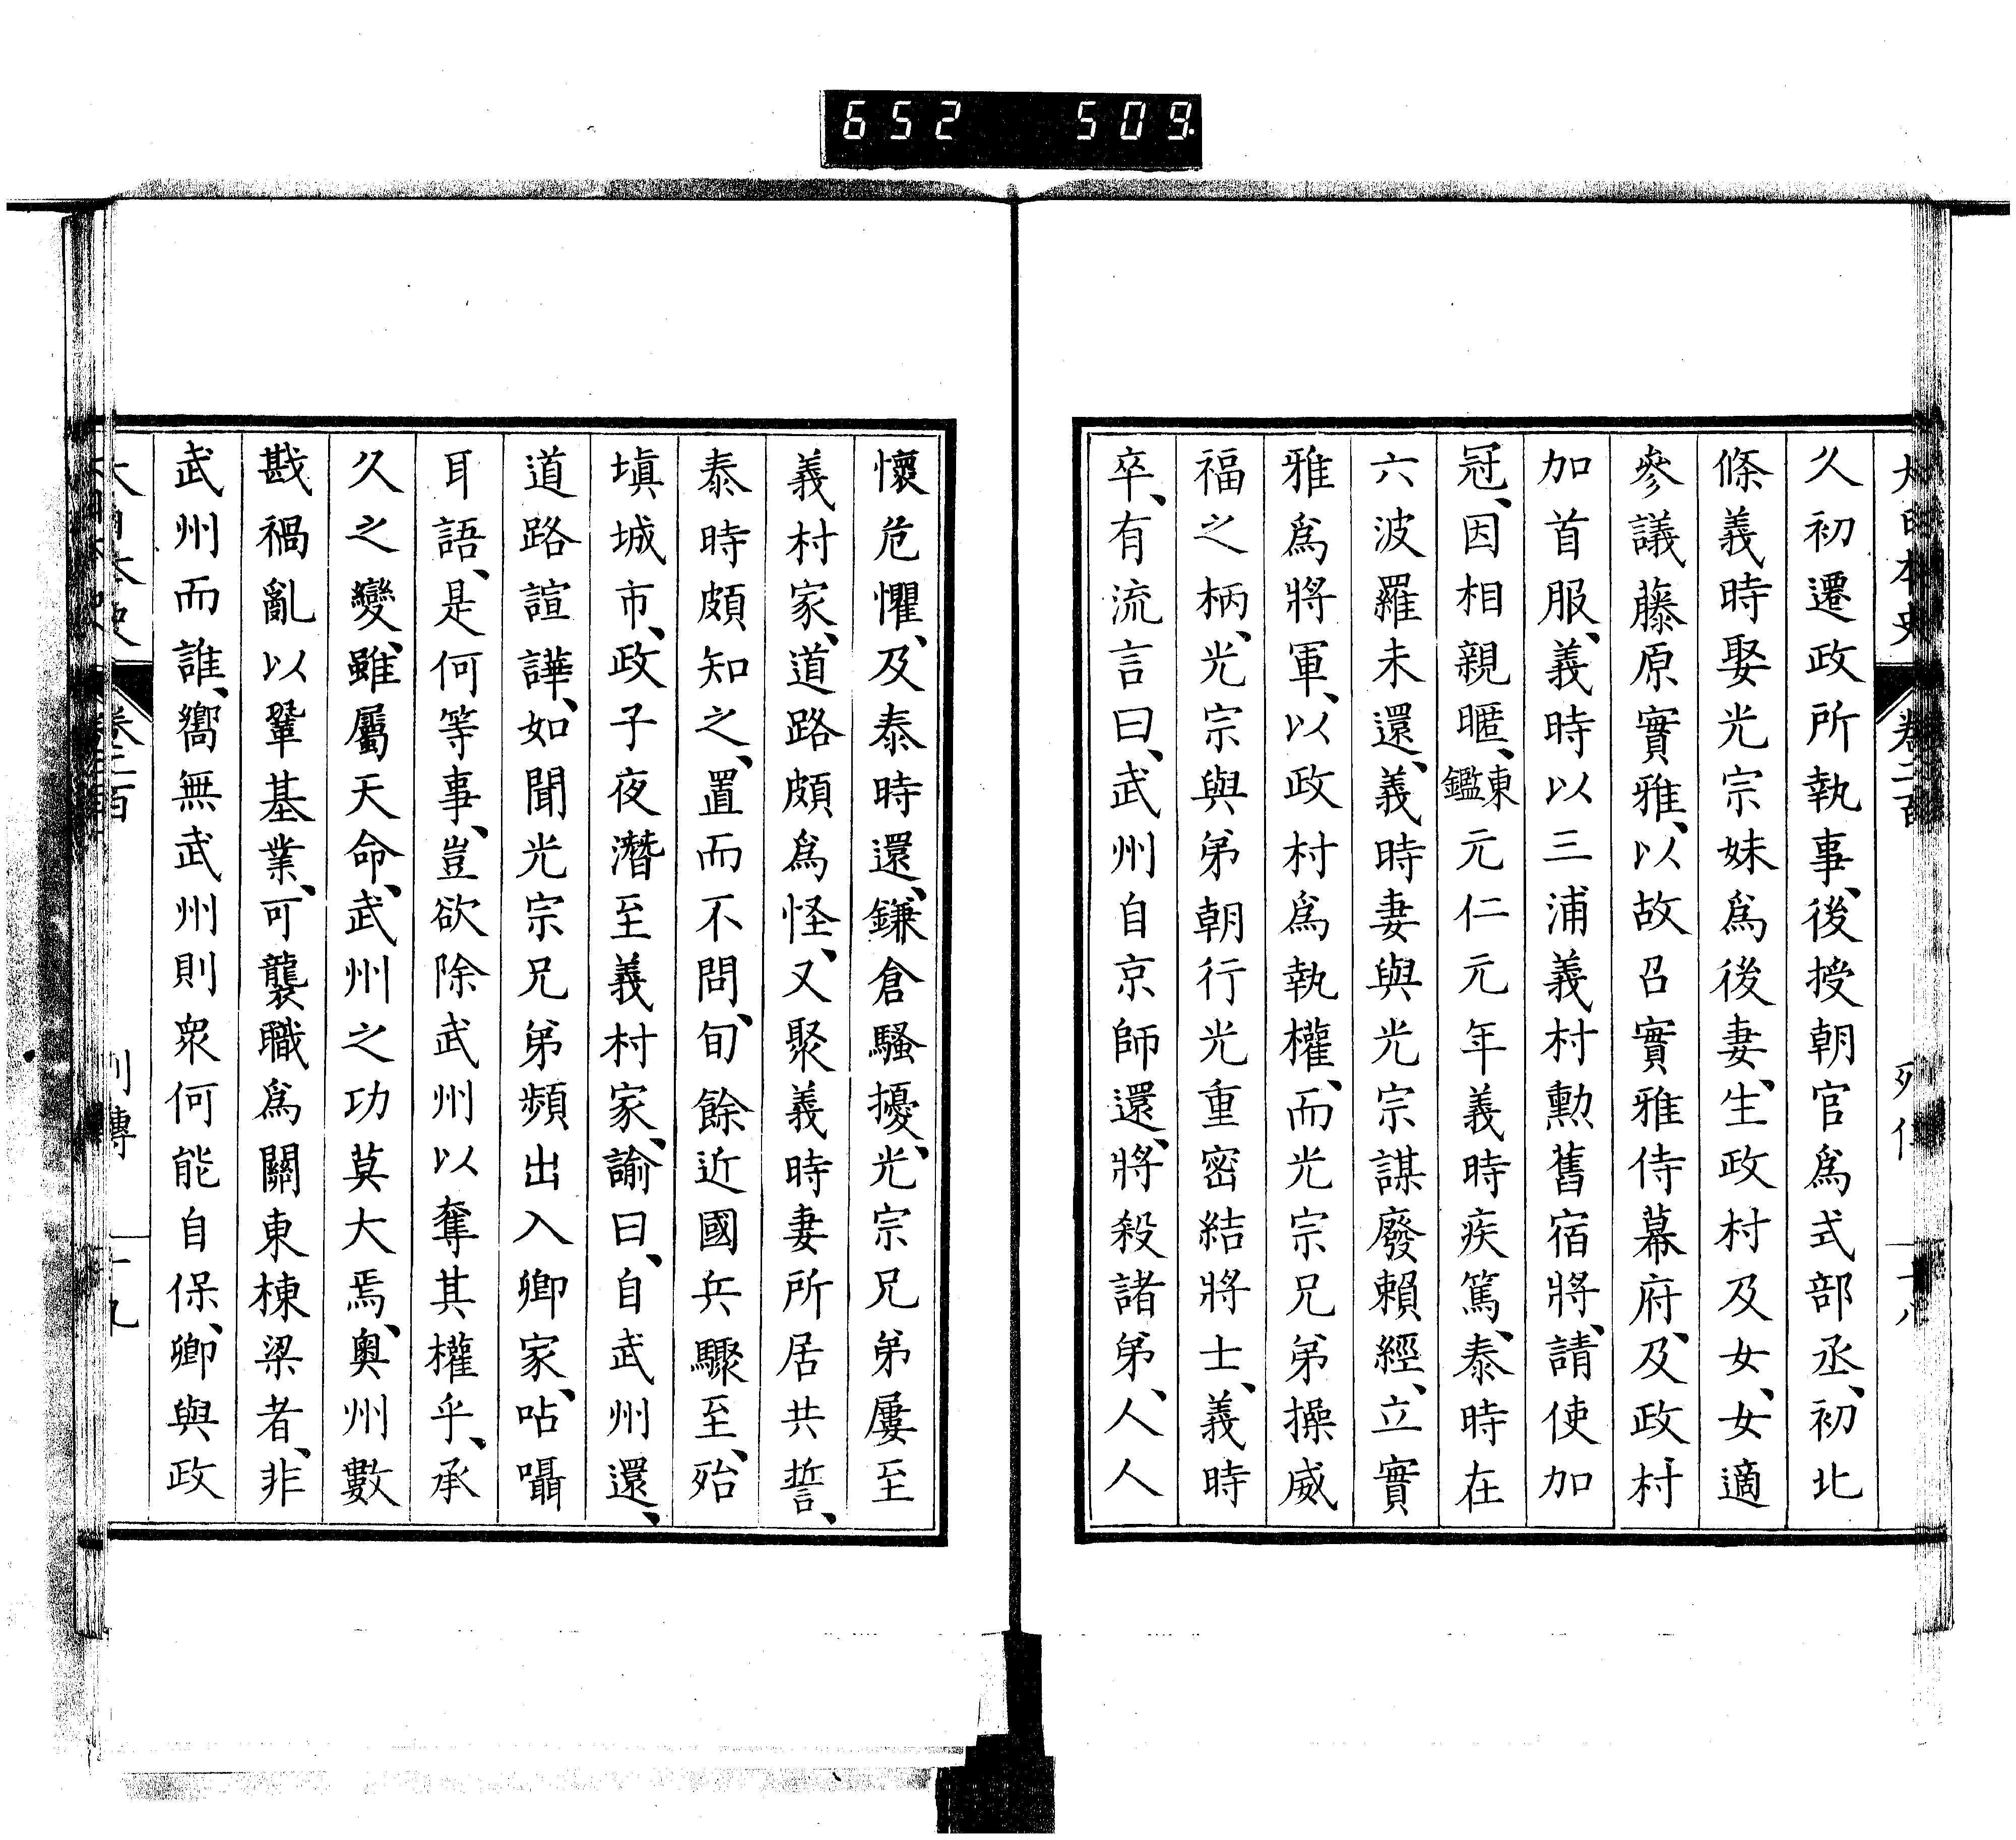 652 509
大日本史 卷二百 列傳 十八
久初遷政所執事、後授朝官爲式部丞、初北
條義時娶光宗妹爲後妻、生政村及女、女適
參議藤原實雅、以故召實雅侍幕府、及政村
加首服、義時以三浦義村勲舊宿將、請使加
冠、因相親暱、東鑑元仁元年義時疾篤、泰時在
六波羅未還、義時妻與光宗謀廢賴經、立實
雅爲將軍、以政村爲執權、而光宗兄弟操威
福之柄、光宗與弟朝行光重密結將士、義時
卒、有流言曰、武州自京師還、將殺諸弟、人人
懷危懼、及泰時還、鎌倉騷擾、光宗兄弟屢至
義村家、道路頗爲怪、又聚義時妻所居共誓、
泰時頗知之、置而不問、旬餘近國兵驟至、殆
塡城市、政子夜潛至義村家、諭曰、自武州還、
道路諠譁、如聞光宗兄弟頻出入卿家、呫囁
耳語、是何等事、豈欲除武州以奪其權乎、承
久之變、雖屬天命、武州之功莫大焉、奧州數
戡禍亂以鞏基業、可襲職爲關東棟梁者、非
武州而誰、嚮無武州則眾何能自保、卿與政
大日本史 卷二百 列傳 十九